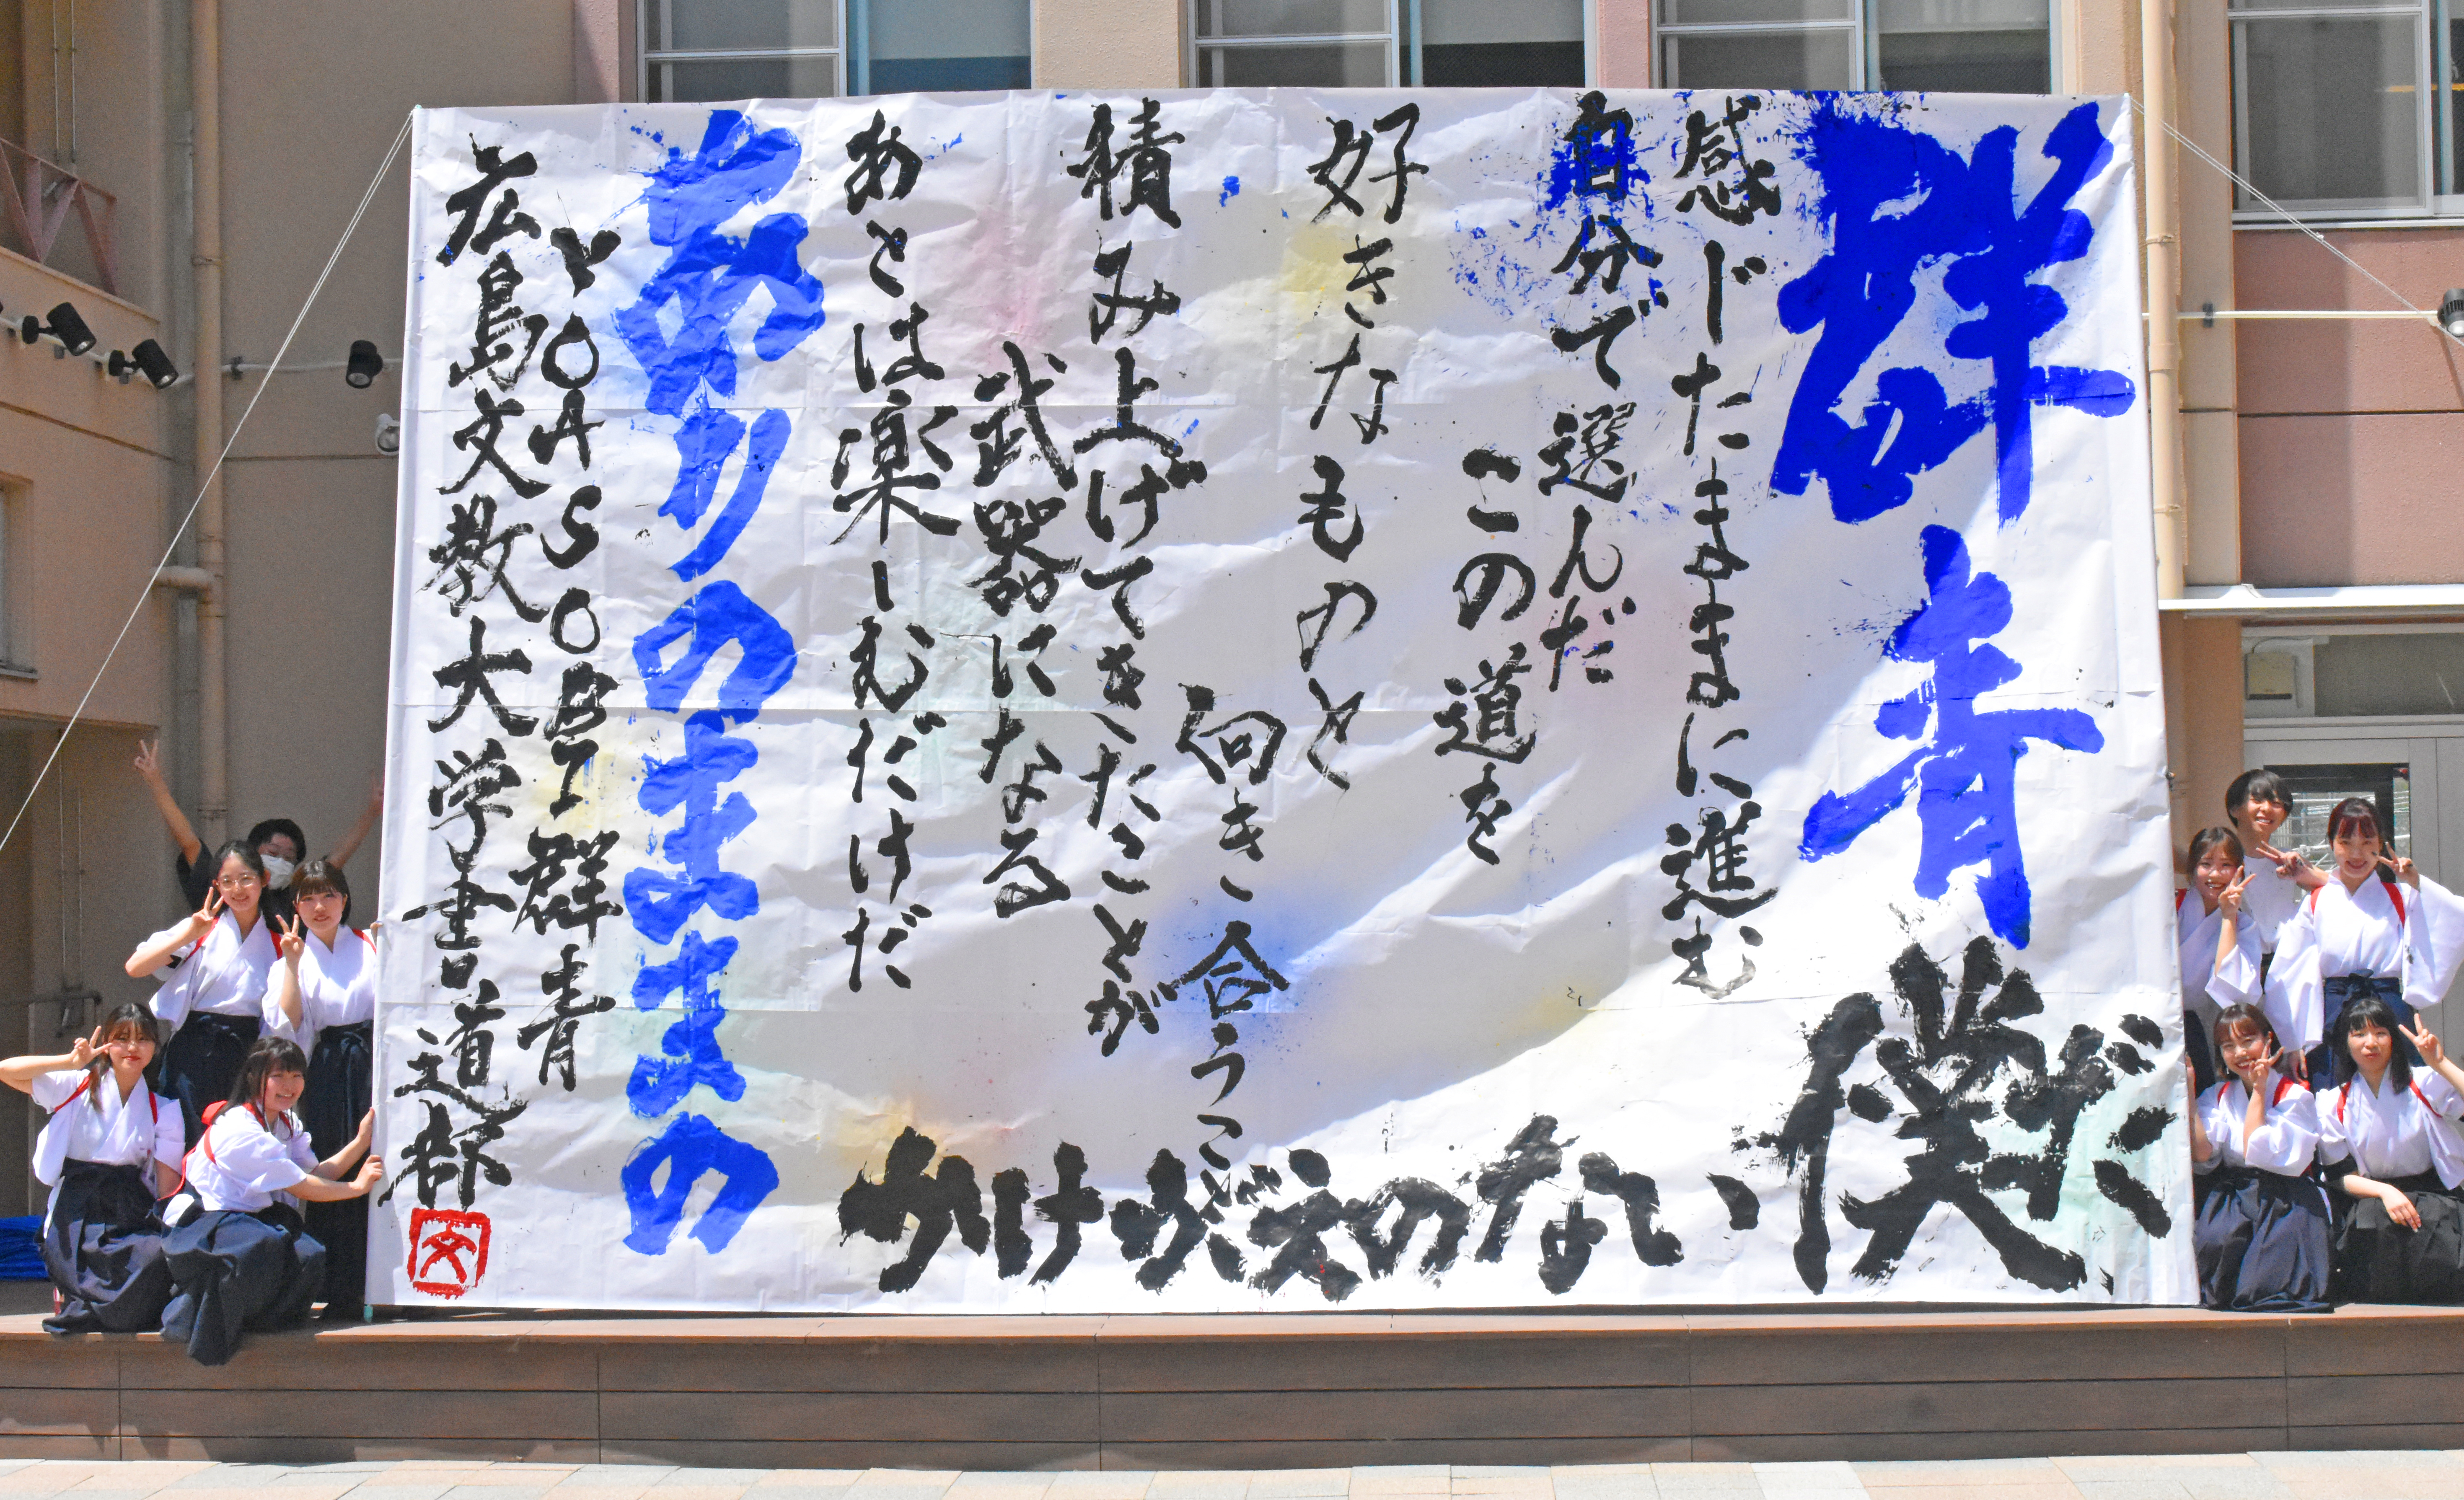 群青
感じたままに進む
自分で選んだ
この道を
好きなものと
向き合うこと
積み上げてきたことが
武器になる
あとは楽しむだけだ
ありのままの
かけがえのない
僕だ
YOASOBI 群青
広島文教大学書道部
文